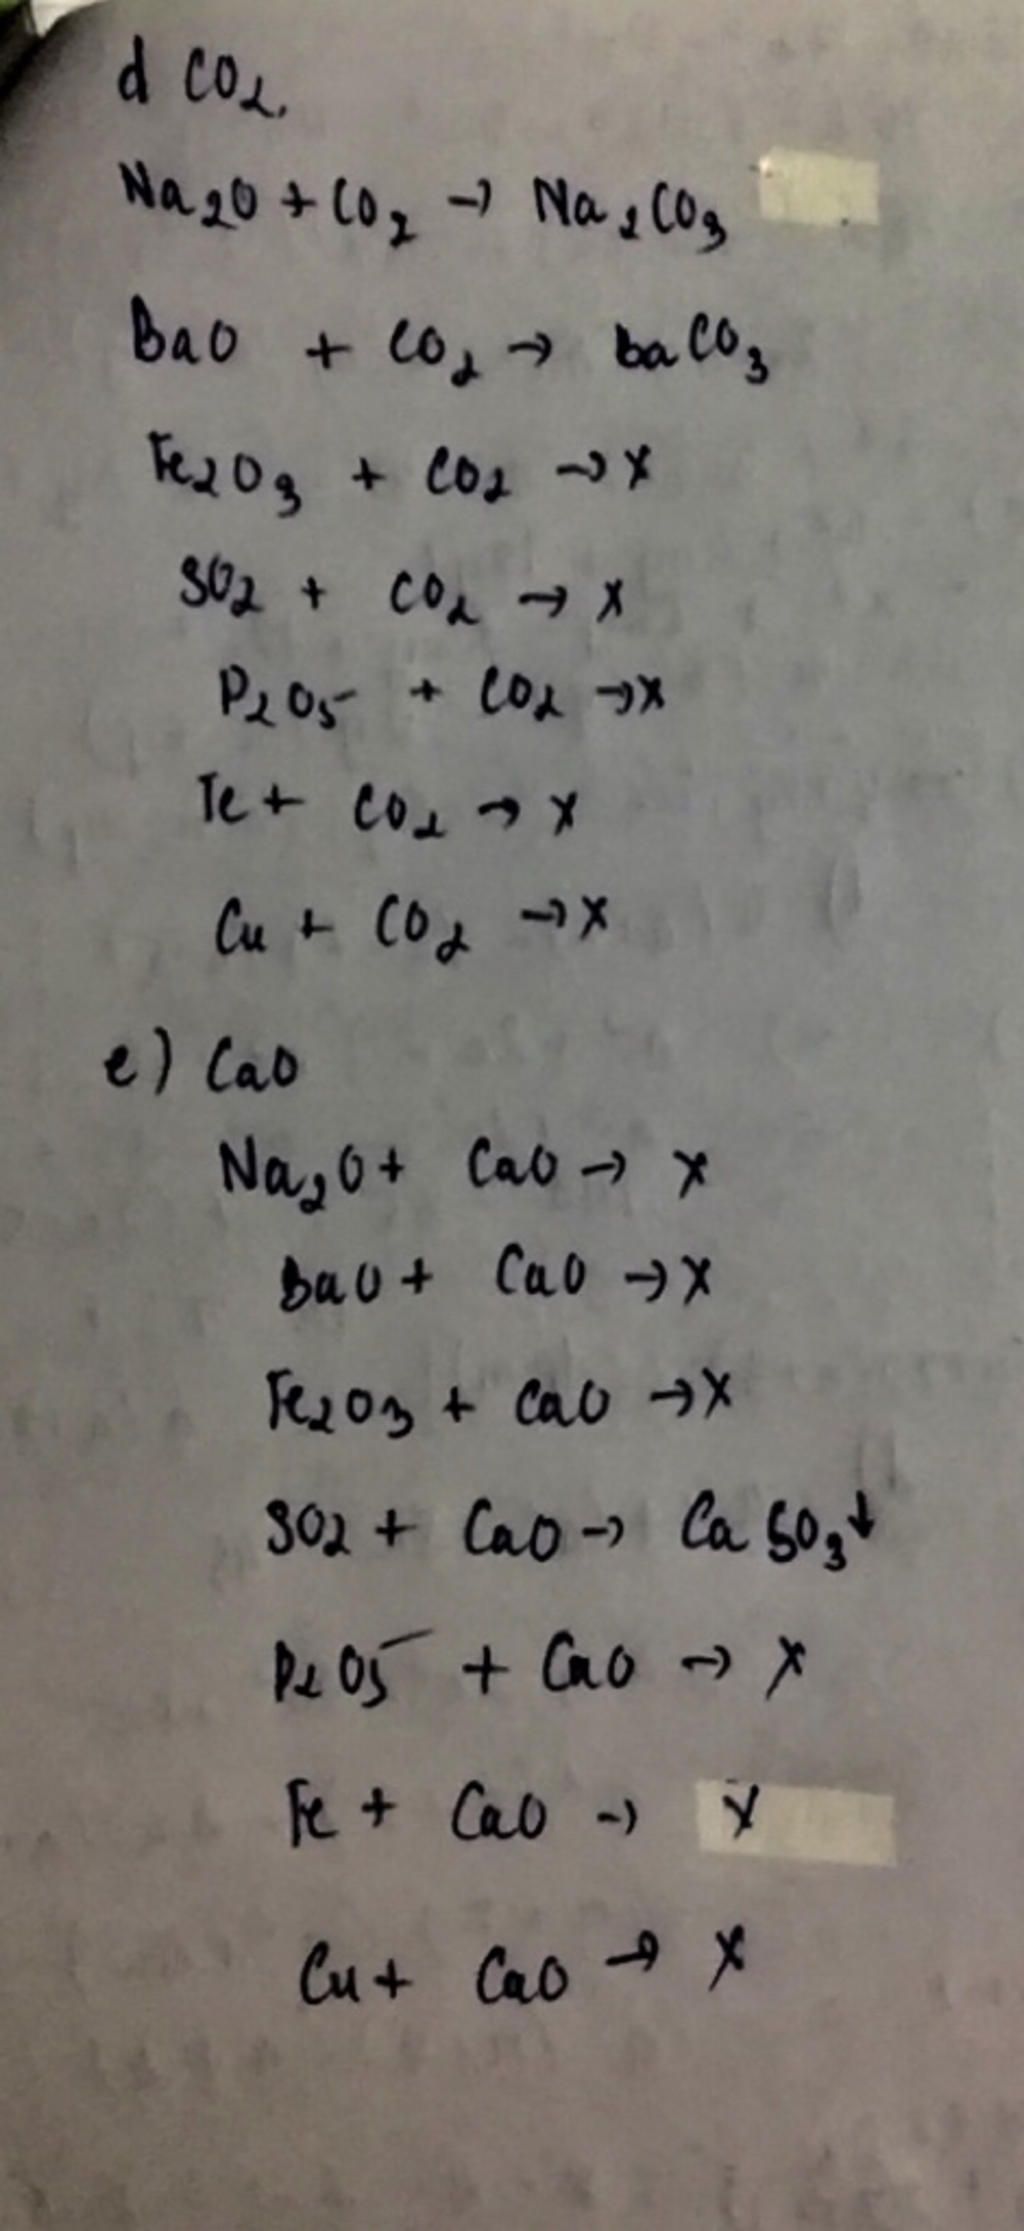 d CO2.
Na2O + CO2 → Na2CO3
BaO + CO2 → baCO3
Fe2O3 + CO2 → x
SO2 + CO2 → x
P2O5 + CO2 → x
Fe + CO2 → x
Cu + CO2 → x
e) CaO
Na2O + CaO → x
BaO + CaO → x
Fe2O3 + CaO → x
SO2 + CaO → CaSO3↓
P2O5 + CaO → x
Fe + CaO → x
Cu + CaO → x